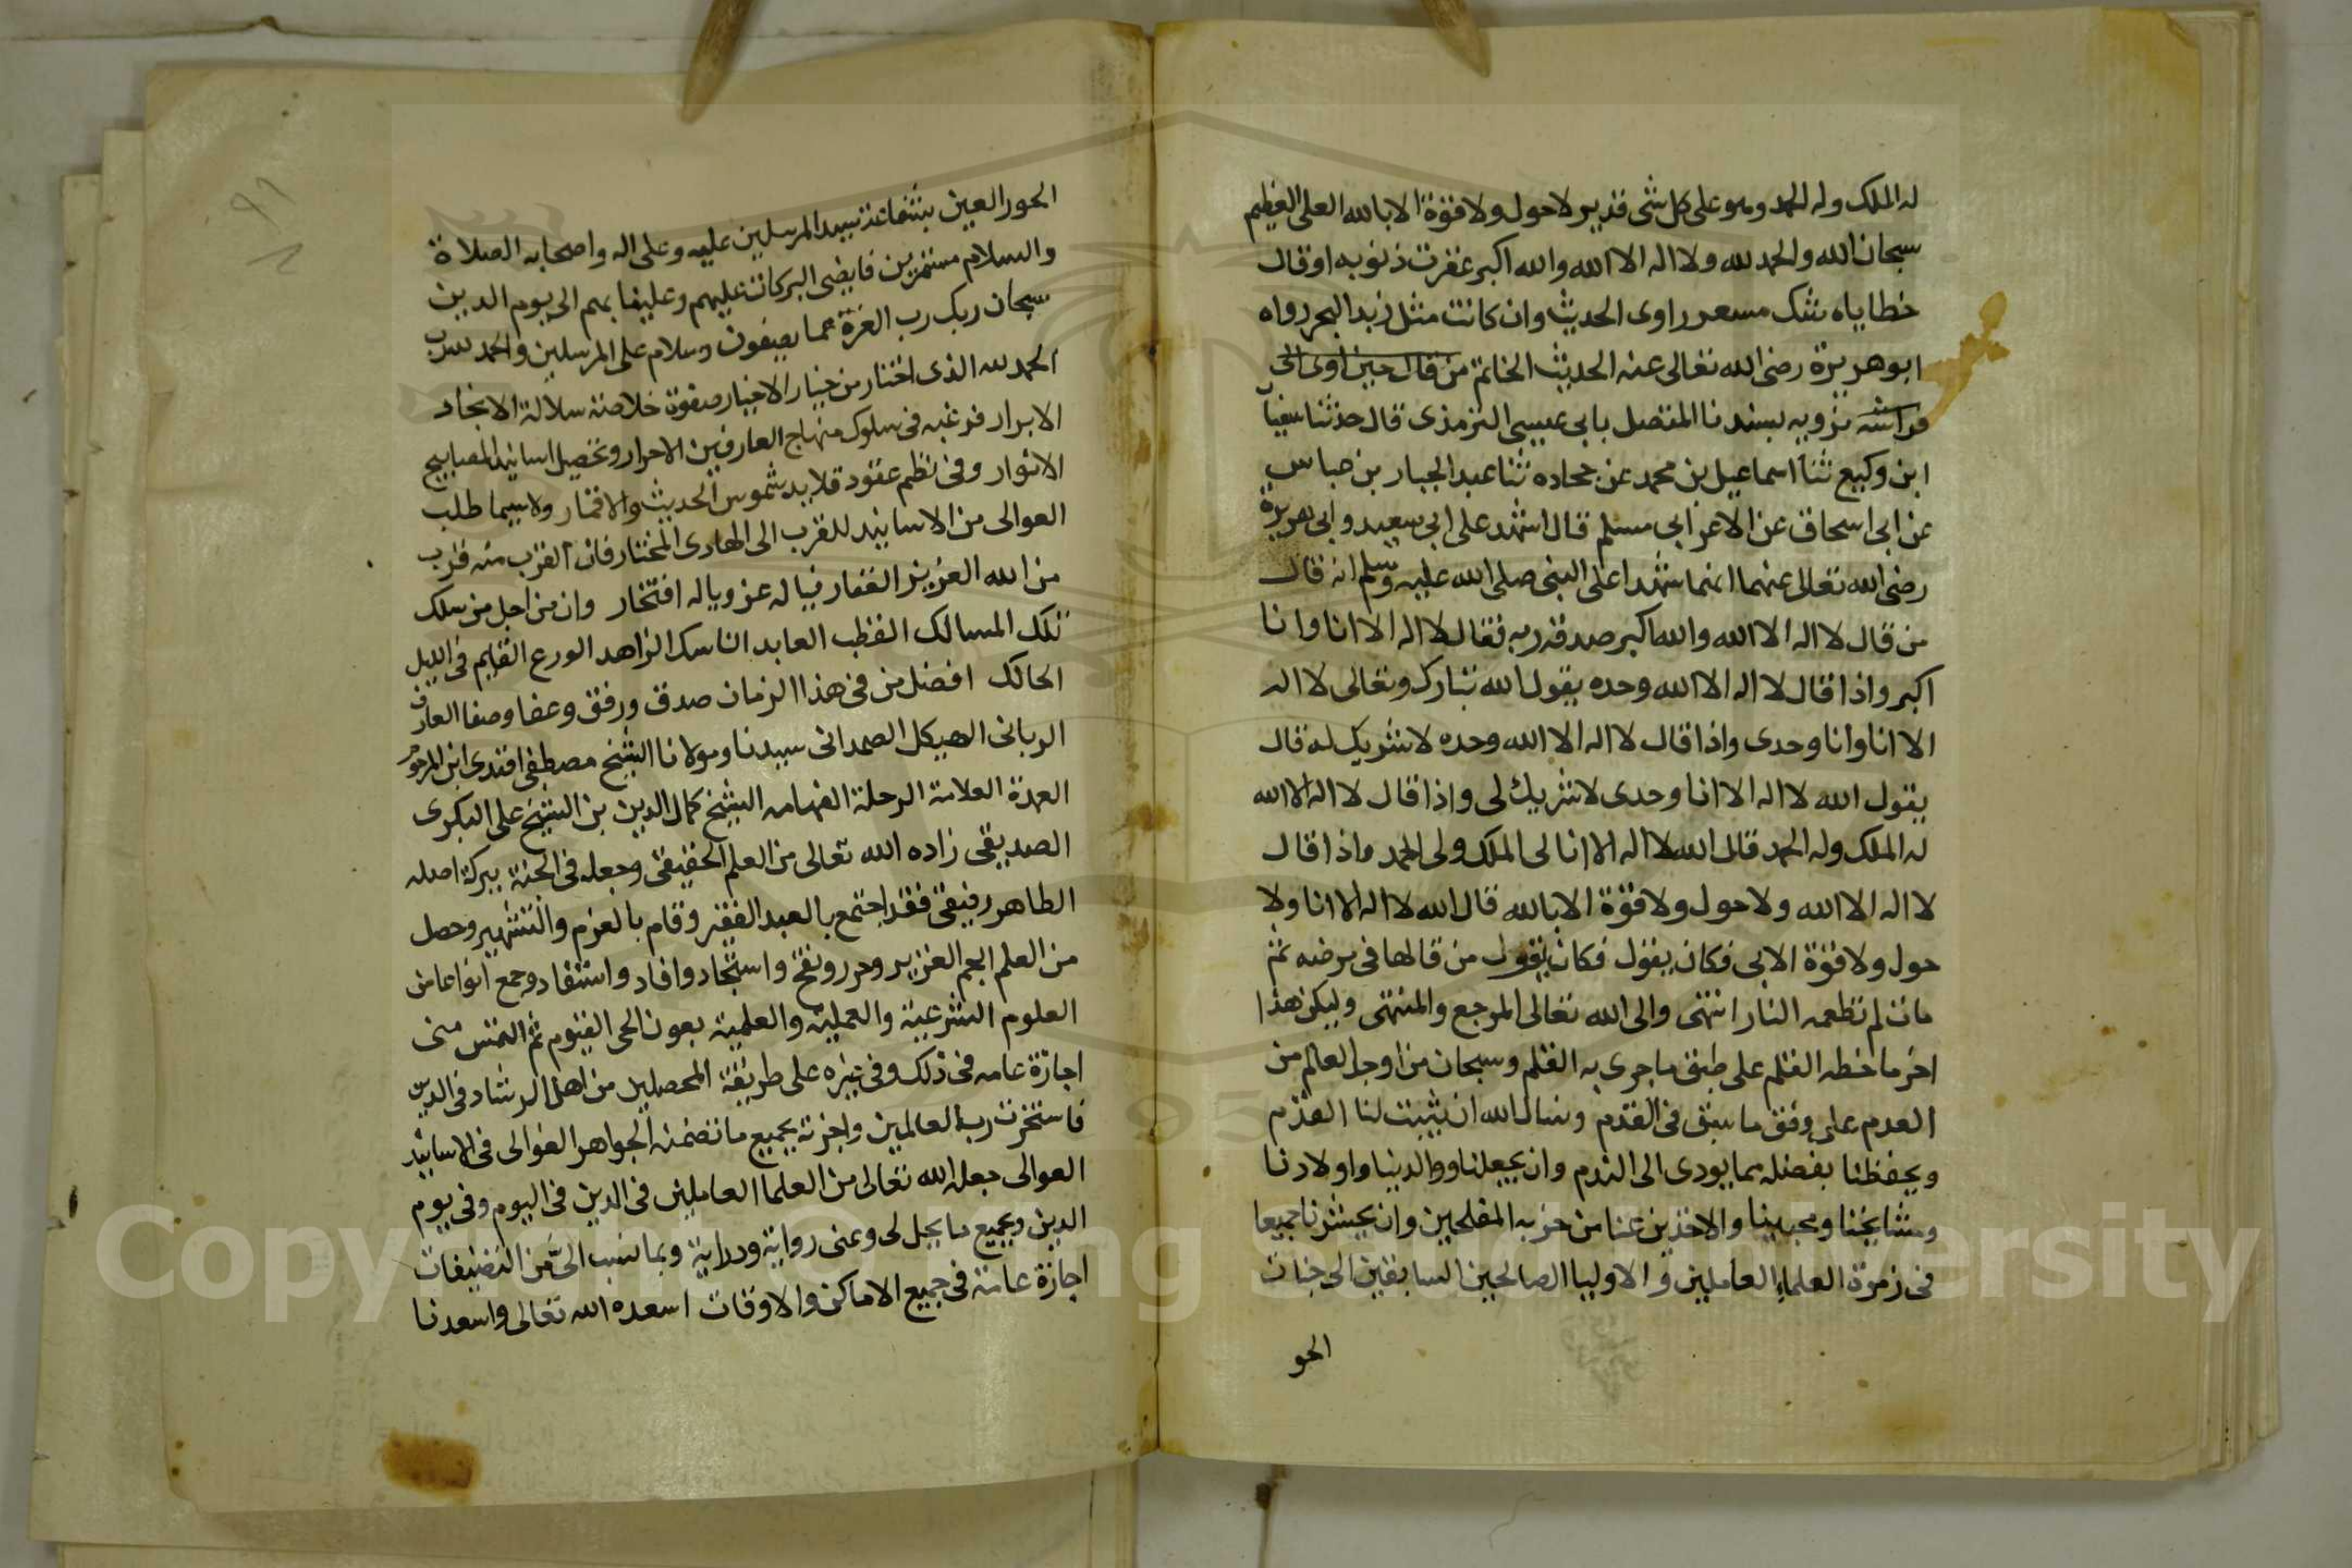 له الملك وله الحمد وهو على كل شى قدير لاحول ولا قوة الا بالله العلى العظيم
سبحان الله والحمد لله ولا اله الا الله والله اكبر غفرت ذنوبه او قال
خطاياه شك مسعر راوى الحديث وان كانت مثل زبد البحر رواه
ابو هريرة رضى الله تعالى عنه الحديث الخاتم من قال حين اوى الى
فراشه نرويه بسندنا المتصل بابى عيسى الترمذى قال حدثنا سفيان
ابن وكيع ثنا اسماعيل بن محمد عن جحاده ثنا عبد الجبار بن عباس
عن ابى اسحاق عن الاغر ابى مسلم قال اشهد على ابى سعيد وابى هريرة
رضى الله تعالى عنهما انهما شهدا على النبى صلى الله عليه وسلم انه قال
من قال لا اله الا الله والله اكبر صدقه ربه فقال لا اله الا انا وانا
اكبر واذا قال لا اله الا الله وحده يقول الله تبارك وتعالى لا اله
الا انا وانا وحدى واذا قال لا اله الا الله وحده لا شريك له قال
يقول الله لا اله الا انا وحدى لا شريك لى واذا قال لا اله الا الله
له الملك وله الحمد قال الله لا اله الا انا لى الملك ولى الحمد واذا قال
لا اله الا الله ولا حول ولا قوة الا بالله قال الله لا اله الا انا ولا
حول ولا قوة الا بى فكان يقول فكان يقول من قالها فى مرضه ثم
مات لم تطعمه النار انتهى والى الله تعالى المرجع والمنتهى وليكن هذا
اخر ما خطه القلم على طبق ما جرى به القلم وسبحان من اوجد العالم من
العدم على وفق ما سبق فى القدم ونسال الله ان يثبت لنا القدم
ويحفظنا بفضله مما يودى الى الندم وان يجعلنا ووالدينا واولادنا
ومشايخنا ومحبينا والاخذين عنا من حزبه المفلحين وان يحشرنا جميعا
فى زمرة العلماء العاملين والاوليا الصالحين السابقين الى جنات
الحو
الحور العين بشفاعة سيد المرسلين عليه وعلى اله واصحابه الصلاة
والسلام مستمرين فايضى البركات عليهم وعلينا بهم الى يوم الدين
سبحان ربك رب العزة عما يصفون وسلام على المرسلين والحمد لله رب
الحمد لله الذى اختار من خيار الاخيار صفوة خلاصة سلالة الانجاد
الابرار فرغبه فى سلوك منهاج العارفين الاحرار وتحصيل اسانيد المصابيح
الانوار وفى نظم عقود قلايد شموس الحديث والاقمار ولا سيما طلب
العوالى من الاسانيد للقرب الى الهادى المختار فان القرب منه قرب
من الله العزيز الغفار فياله عز وياله افتخار وان من اجل من سلك
تلك المسالك القطب العابد الناسك الزاهد الورع القايم فى الليل
الحالك افضل من فى هذا الزمان صدق ورفق وعفا وصفا العارف
الربانى الهيكل الصمدانى سيدنا ومولانا الشيخ مصطفى افندى ابن المرحوم
العمدة العلامة الرحلة الفهامه الشيخ كمال الدين بن الشيخ على البكرى
الصديقى زاده الله تعالى من العلم الحقيقى وجعله فى الجنة ببركة اصله
الطاهر رفيقى فقد اجتمع بالعبد الفقير وقام بالعزم والتشمير وحصل
من العلم الجم الغزير وحرر ونقح واستجاد وافاد واستفاد وجمع انواعا من
العلوم الشرعية والعملية والعلمية بعون الحى القيوم ثم التمس منى
اجازة عامه فى ذلك وفى غيره على طريقة المحصلين من اهل الرشاد فى الدين
فاستخرت رب العالمين واجزته بجميع ما تضمنه الجواهر الغوالى فى الاسانيد
العوالى جعله الله تعالى من العلما العاملين فى الدين فى اليوم وفى يوم
الدين وبجميع ما يجل لى وعنى رواية ودراية وبما نسب الىَّ من التصنيفات
اجازة عامة فى جميع الاماكن والاوقات اسعده الله تعالى واسعدنا
Copyright © King Saud University